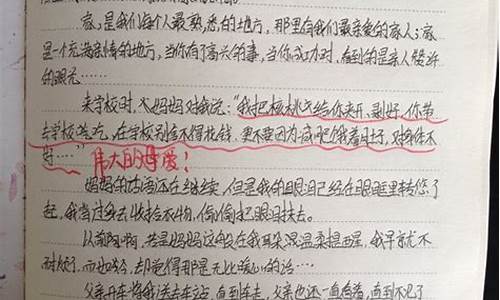 家,是我们每个人最熟悉的地方,那里有我们最亲爱的家人;家
是一个充满亲情的地方,当你有了高兴的事,当你成功时,看到的是亲人赞许
的眼光……
来学校时,大妈妈对我说:"我把核桃给你夹开,剥好,你带
去学校吃,在学校别舍不得花钱,更不要因为减肥饿着肚子,对身体不
好……"伟大的母爱!
妈妈的话还在继续,但是我的眼泪已经在眼眶里转悠了
起,我背过身去收拾衣物,偷偷把眼泪抹去。
以前啊,若是妈妈这般在我耳朵混温柔提醒,我早就不
耐烦了。而如今,却觉得那是无比暖心的话……
父亲开车将我送去车站,直到车走,父亲也还一直看着,直到不见了